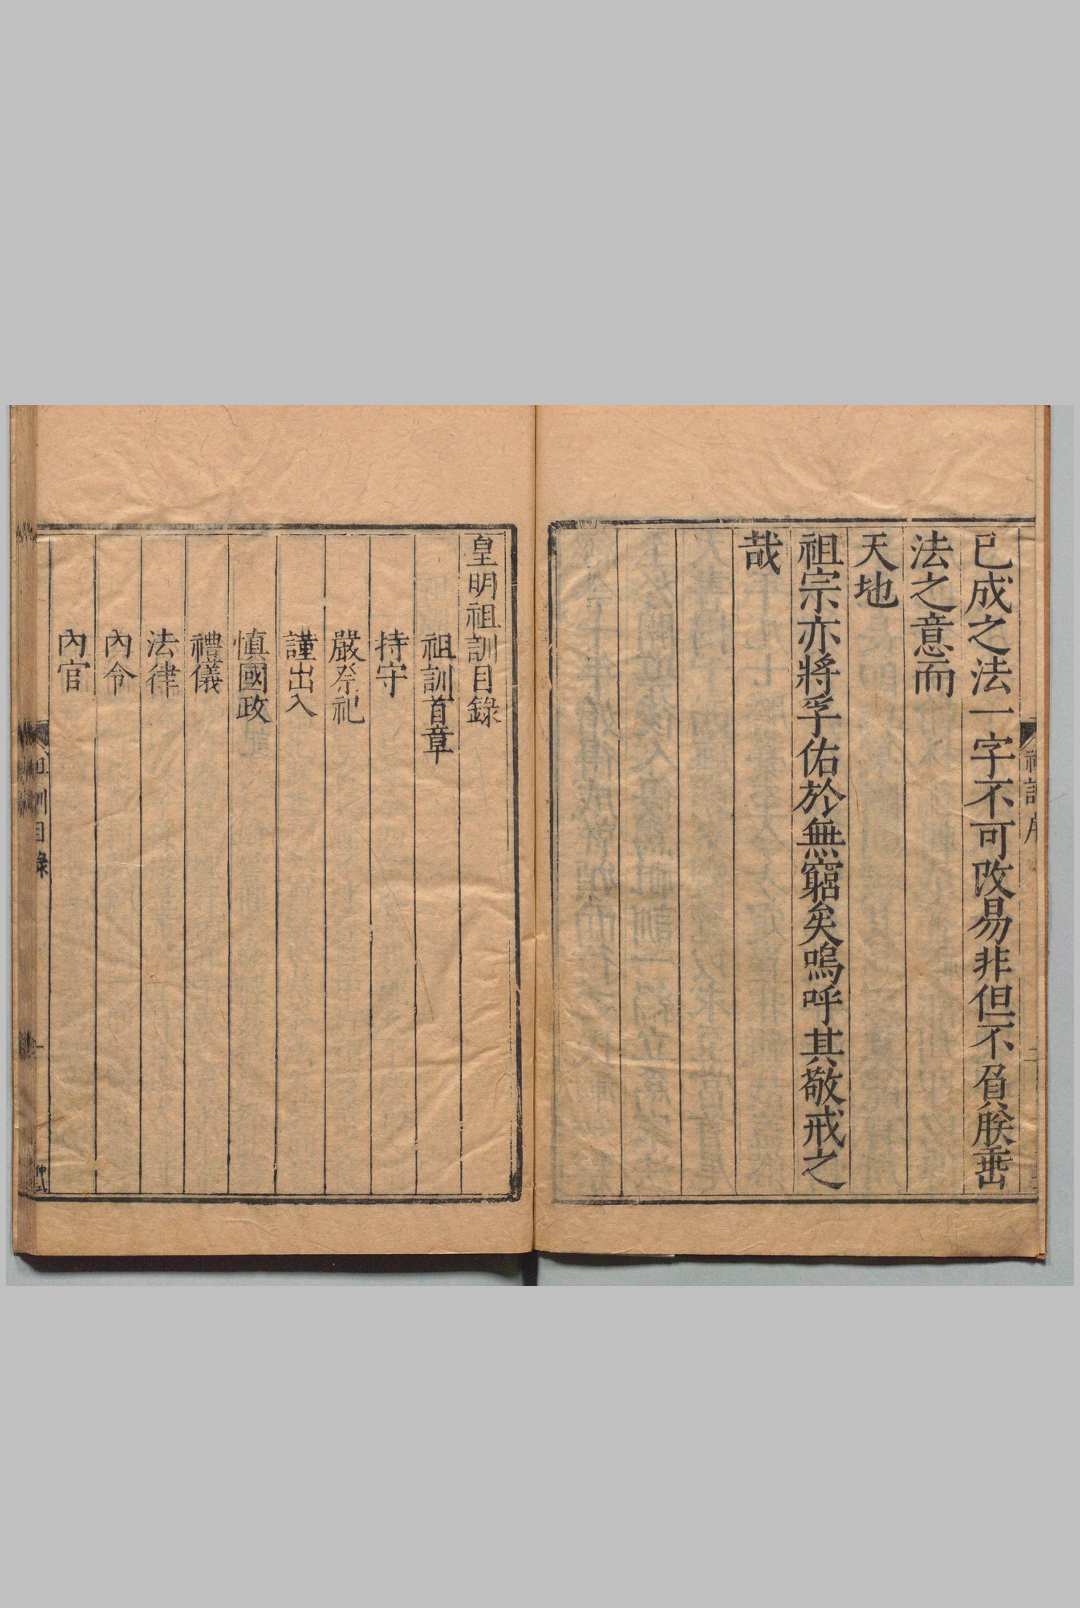 已成之法一字不可改易非但不負朕垂
法之意而
天地
祖宗亦將孚佑於無窮矣嗚呼其敬戒之
哉
皇明祖訓目錄
祖訓首章
持守
嚴祭祀
謹出入
慎國政
禮儀
法律
內令
內官
祖訓目錄